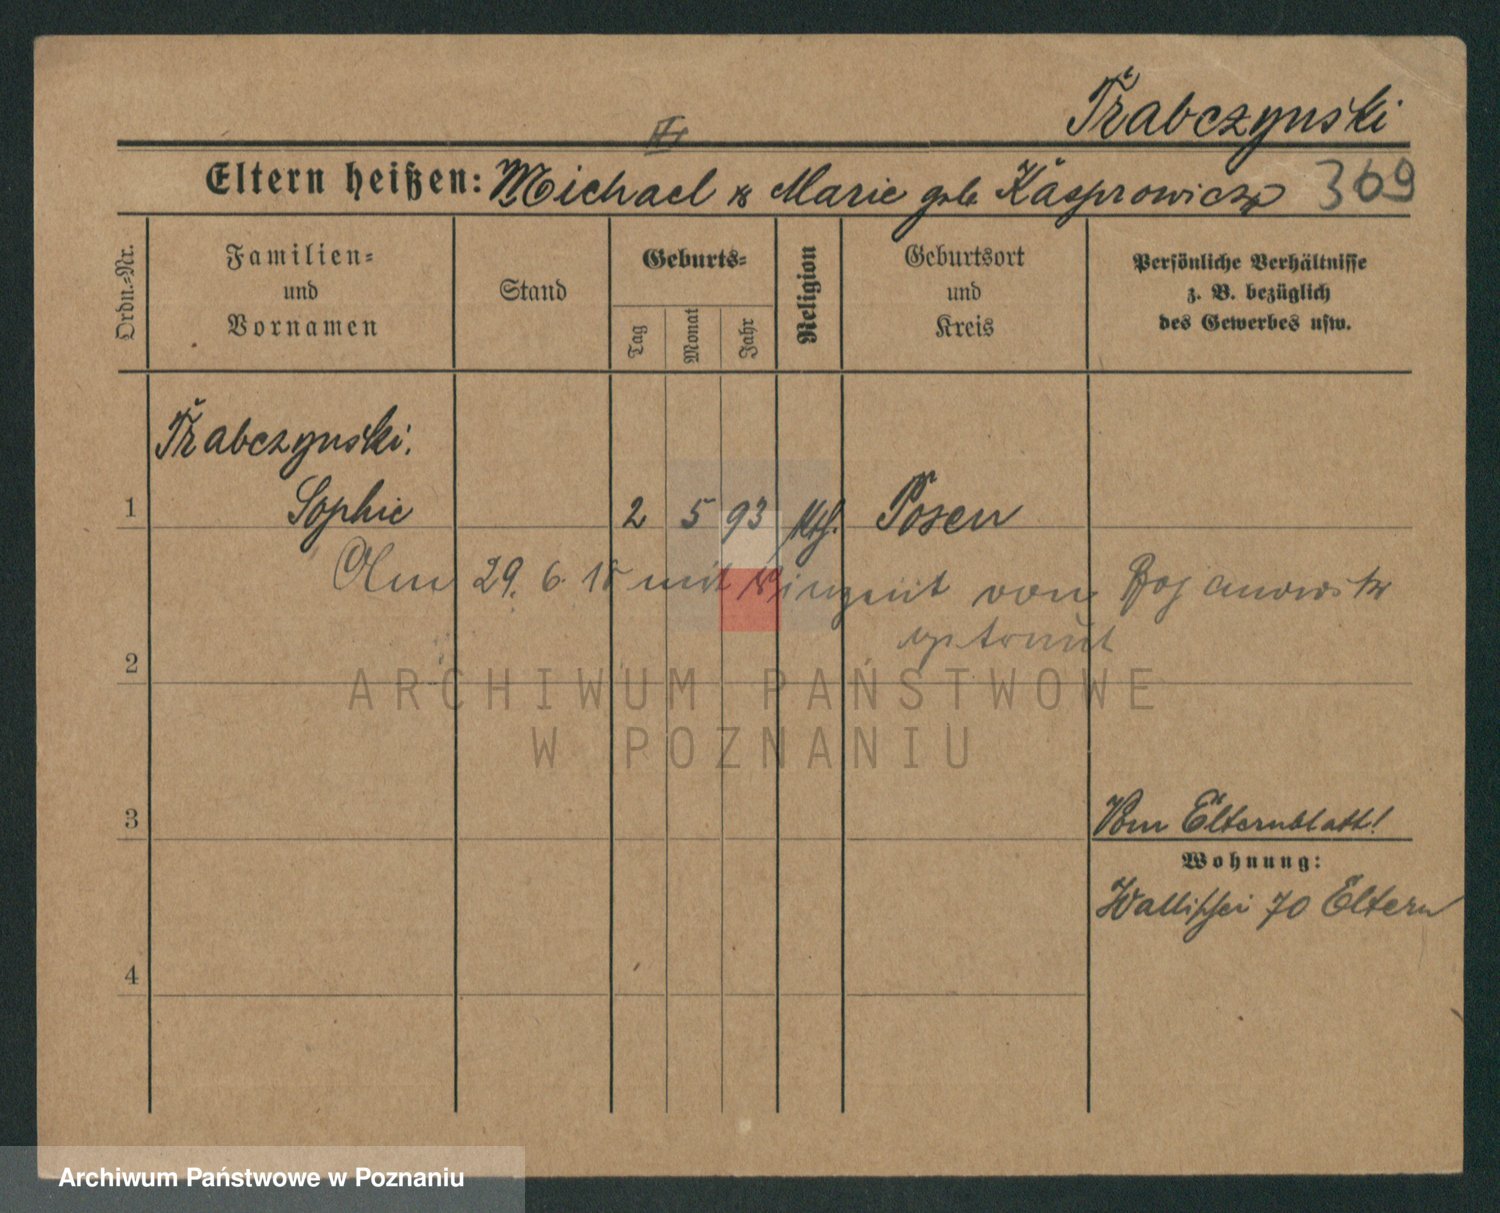 Trabczynski
Eltern heißen: Michael & Marie geb. Kasprowicz 369
Ordn.=Nr.
Familien=
und
Vornamen
Stand
Geburts=
Tag
Monat
Jahr
Religion
Geburtsort
und
Kreis
Persönliche Verhältnisse
z. B. bezüglich
des Gewerbes usw.
Trabczynski.
1 Sophie 2 5 93 kth. Posen
Am 29. 6. 18 mit Vinzent von Bojanowski
getraut
2
ARCHIWUM PAŃSTWOWE
W POZNANIU
3 Vom Elternblatt!
Wohnung:
Wallischei 70 Eltern
4
Archiwum Państwowe w Poznaniu